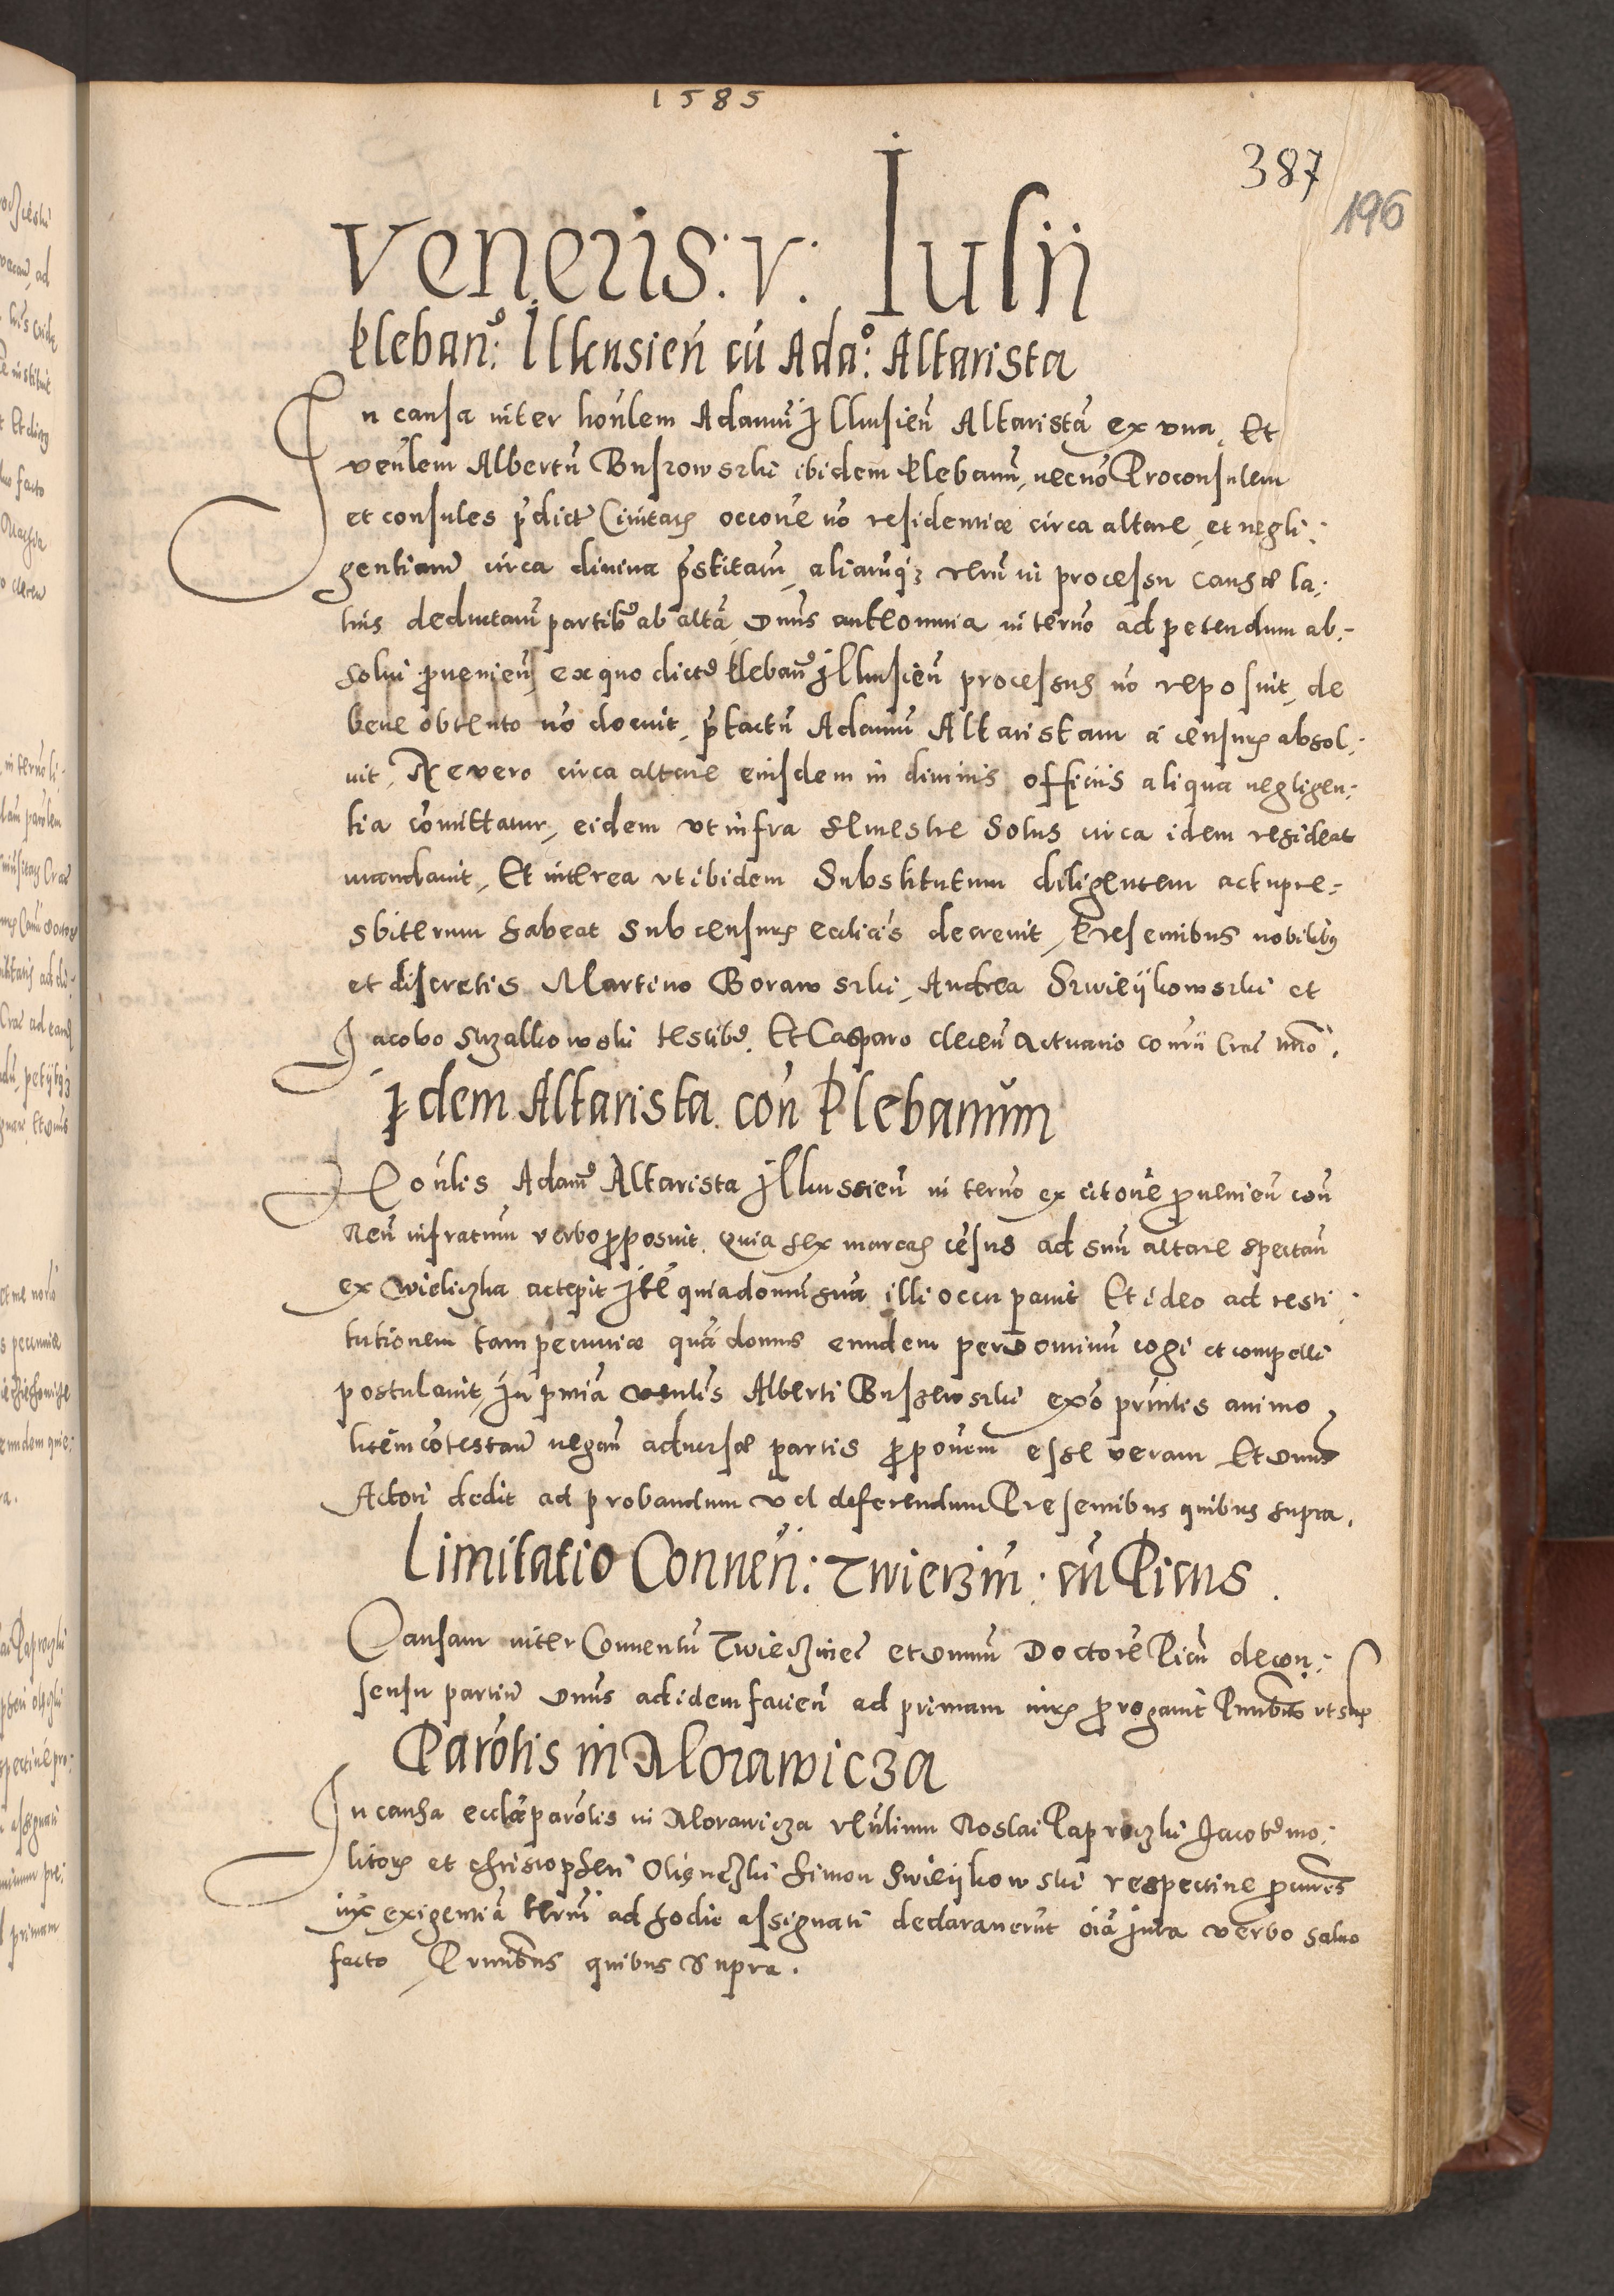 1585
387
196
Veneris: v: Iulii
Pleban9: Ilkusień cū Ada°: Altarista
In causa inter honlem Adamū Ilkusień Altaristā ex una, Et
venlem Albertū Buszowszki ibidem Plebanū, necnō Proconsulem
et consules pdict Civitatis occōne nō residentiæ circa altare, et negli:
gentiarū circa divina pstitarū, aliarūq3 rerū in processu causæ la:
tius deductarū partib9 ab altā Dnūs anteomnia in terno ad petendum ab:
solui pvenień ex quo dict9 Plebanū Ilkusień processus nō reposuit, de
bene obtento nō docuit, ptactū Adamū Altaristam a censuris absol:
vit, Ne vero circa altare eiusdem in divinis officiis aliqua negligen:
tia comittatur, eidem ut infra semestre solus circa idem resideat
mandavit, Et interea ut ibidem Substitutum diligentem actupre:
sbiterum habeat sub censuris ecclicis decrevit, Presentibus nobilibus
et discretis Martino Borawszki, Andrea Szwieykowszki et
Jacobo Suzalkowski testib9. Et Casparo cleceń Actuario cosrii Crac nrō.
Idem Altarista con Plebanum
Honlis Adam9 Altarista Ilkussień in terno ex citōne pvenień con
Reū infratum verbo pposuit, Quia sex marcas cēsus ad suū altare spectań
ex Wieliczka accepit Itē quia domū suā illi occupavit Et ideo ad resti:
tutionem tam pecuniæ quā domus eundem per Dominū cogi et compelli
postulavit, In pntiā venlis Alberti Buszewszki exō pmtis animo
litem cōtestań negań adversæ partis pponem esse veram Et Dnūs
Actori dedit ad probandum vel deferendum Presentibus quibus supra.
Limitatio Conven: Twierzin: cū Picus.
Causam inter Conventū Twierzinec et Dnūm Doctorē Picū de con:
sensu partiū Dnūs ad idem facień ad primam iuris prorogavit Pntibus ut sup
Parolis in Morawicza
In causa ecclæ parolis in Morawicza venlium Noslai Paproczki Jacob9 mo:
litoris et Christopheri Olesnczki Simon Swieykowski respective pcures
iux exigentiā termi ad hodie assignati declaraverūt oiā iura verbo salvo
facto Pntibus quibus supra.